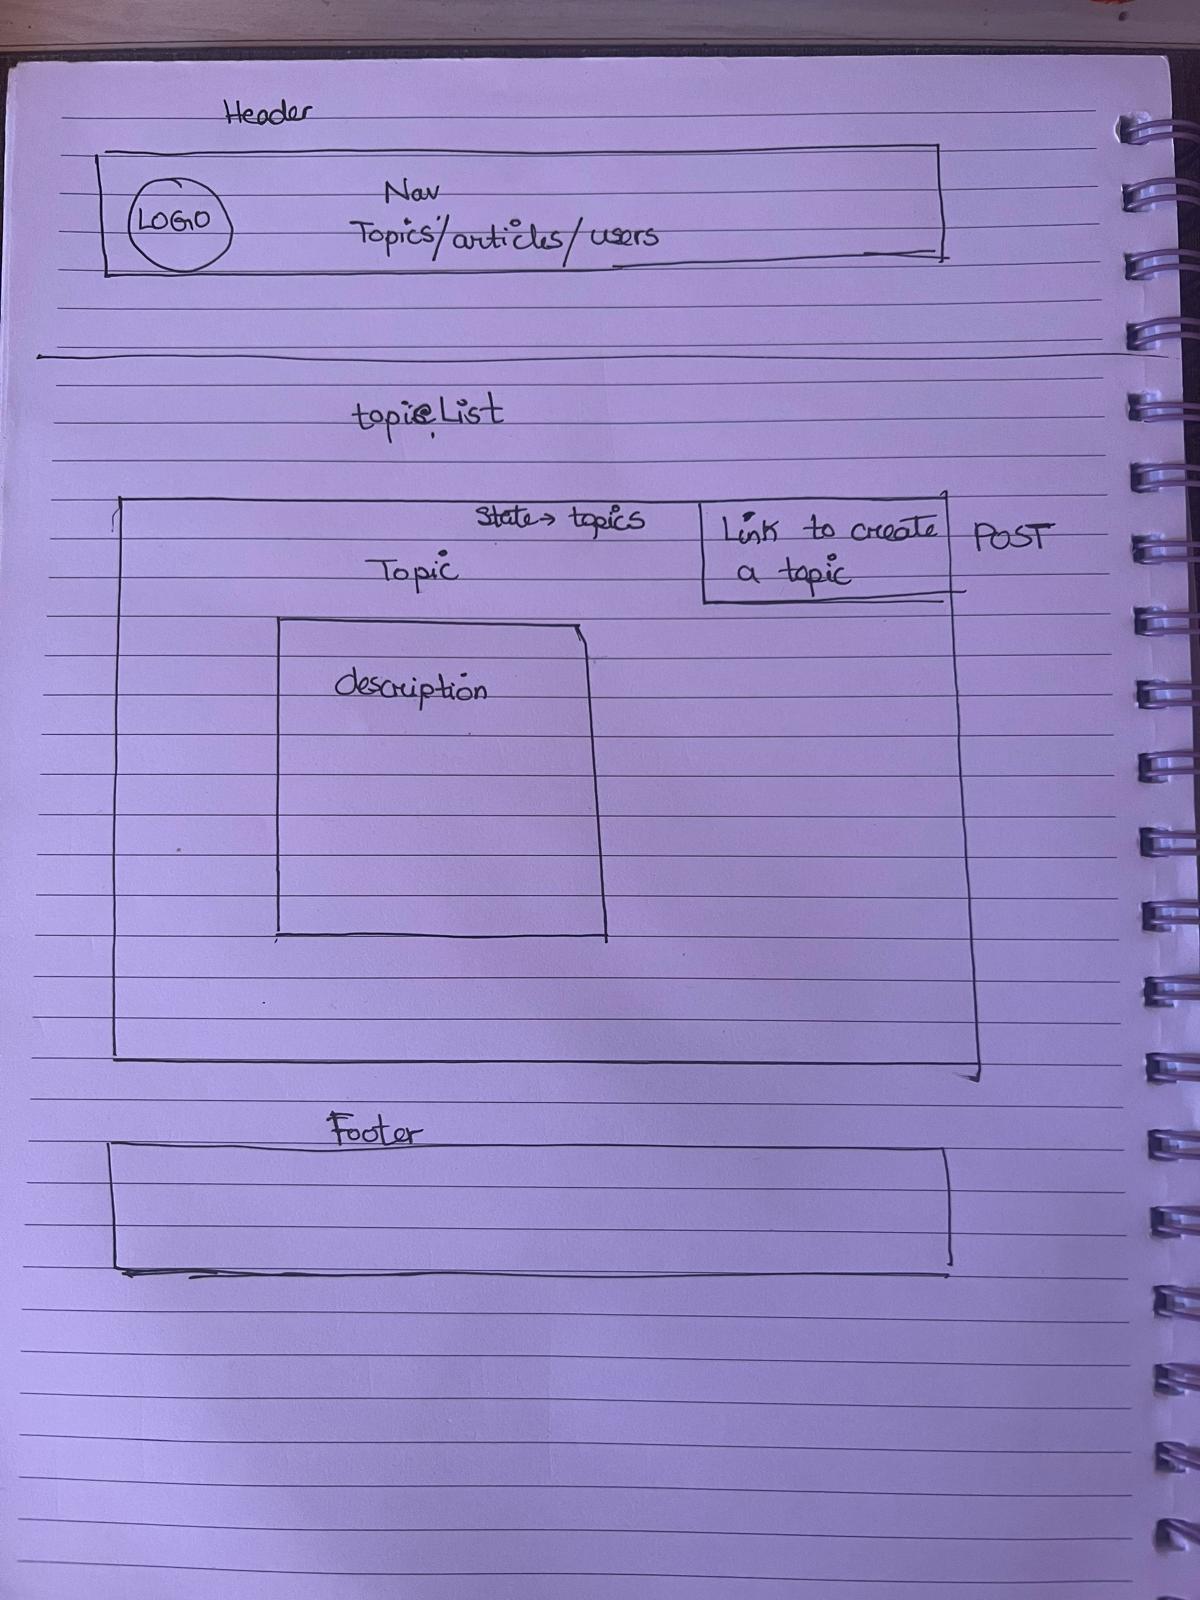 Header
LOGO
Nav
Topics/articles/users
topicList
State→ topics
Link to create
a topic
POST
Topic
description
Footer